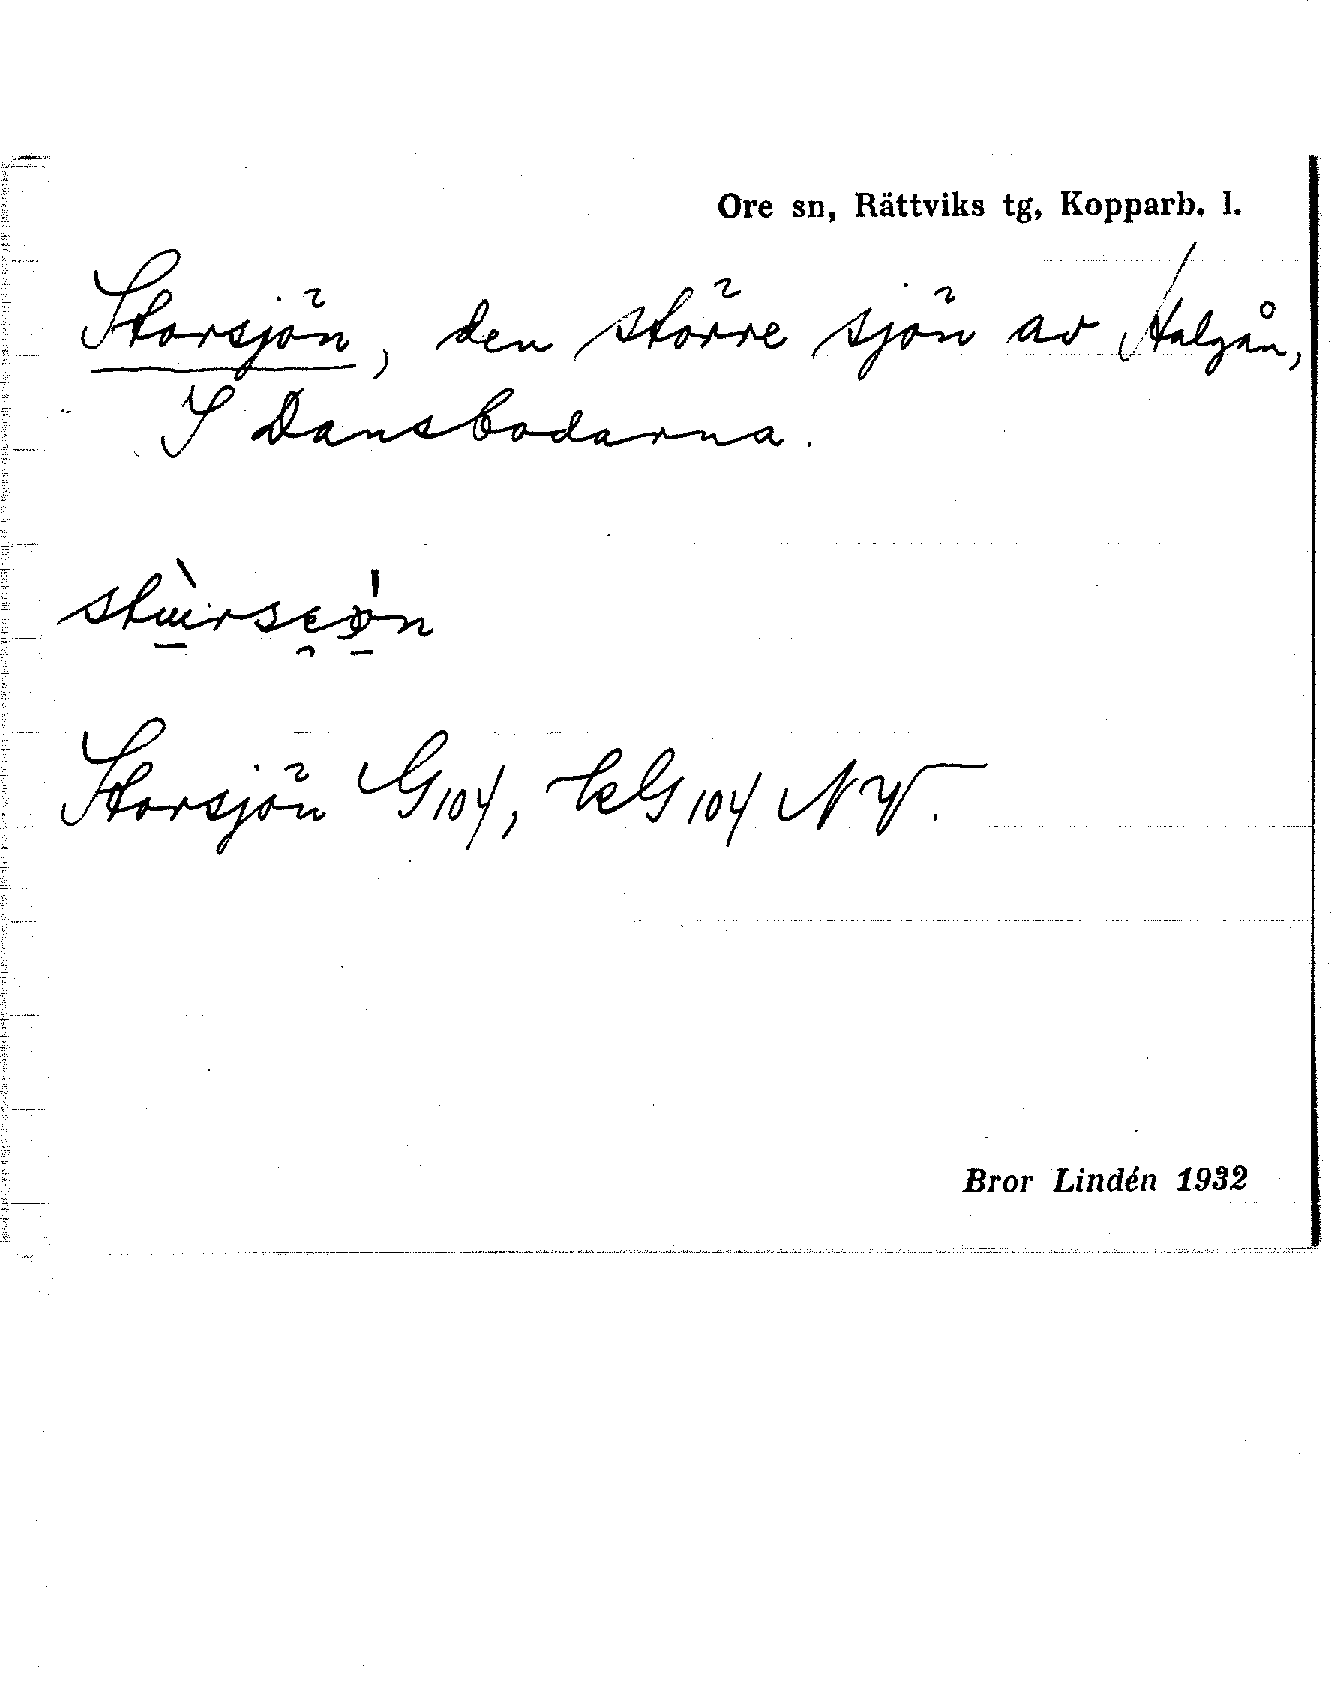 Ore sn, Rättviks tg, Kopparb. l.
Storsjön, den större sjön av Halgån,
S Dansbodarna.
Storsjön G 104, kG 104 NV.
Bror Lindén 1932